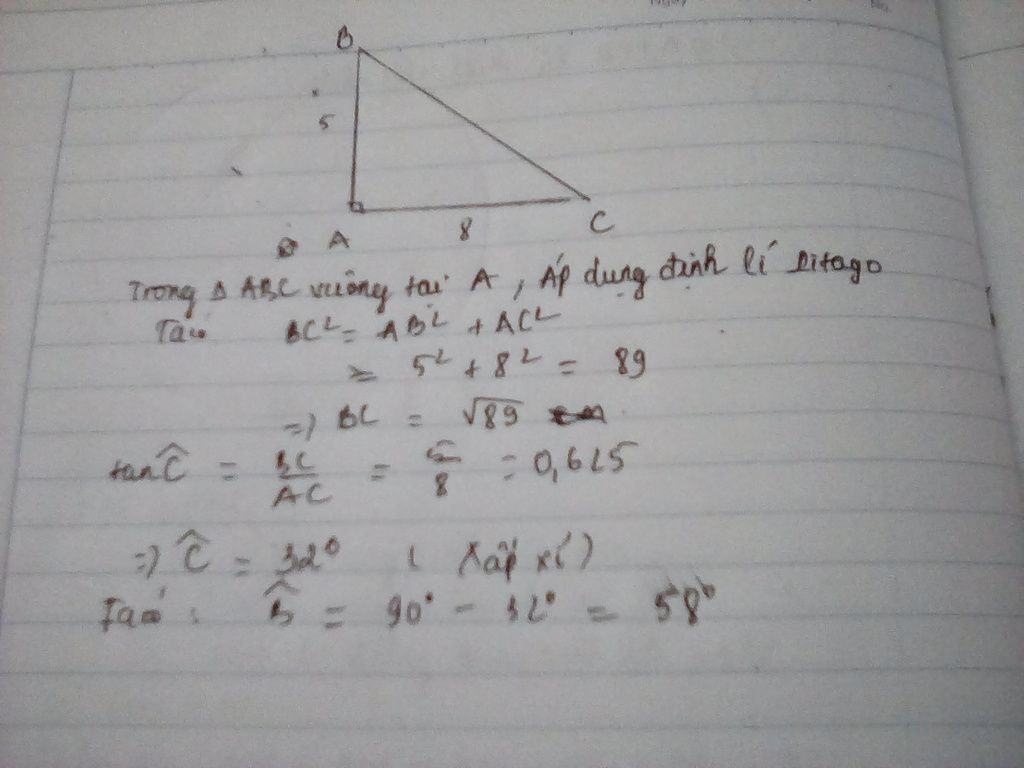 B
5
A 8 C
Trong Δ ABC vuông tại A, Áp dụng định lí Pitago
Ta có BC² = AB² + AC²
= 5² + 8² = 89
=> BC = √89
tan Ĉ = BC/AC = 5/8 = 0,625
=> Ĉ = 32° (Xấp xỉ)
Ta có: B̂ = 90° - 32° = 58°